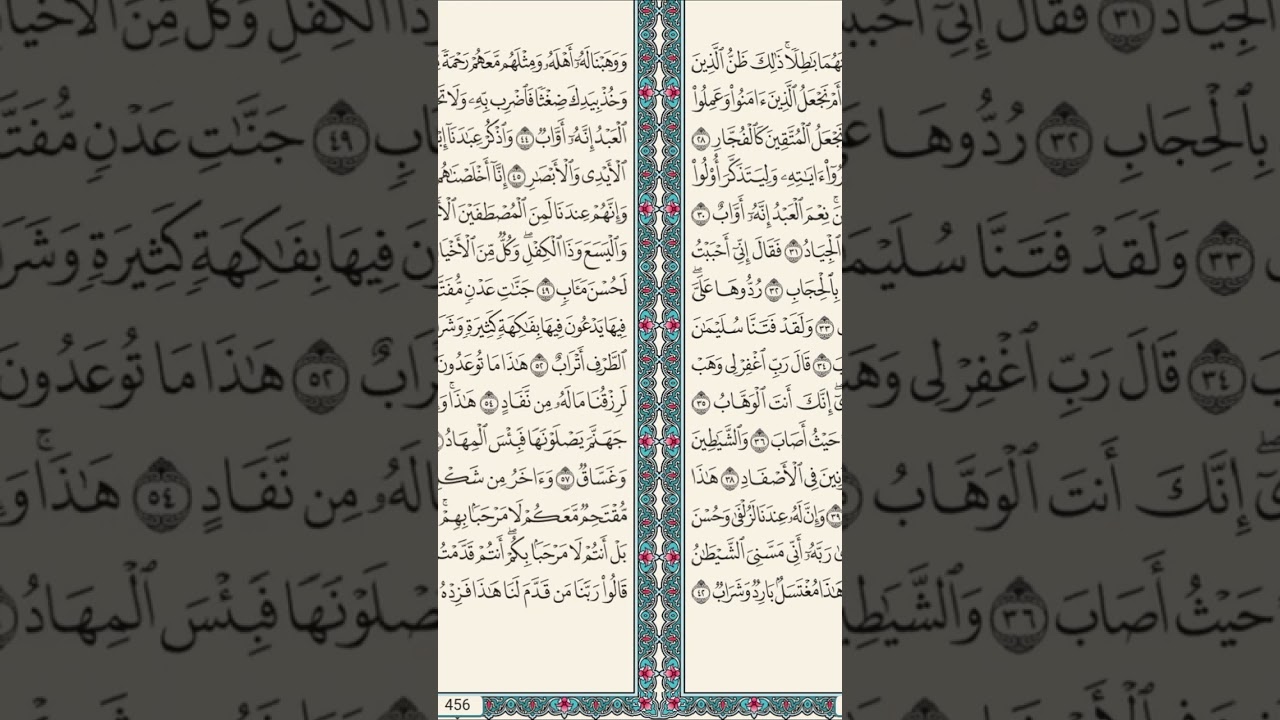 بَٰطِلٗاۚ ذَٰلِكَ ظَنُّ ٱلَّذِينَ
أَمۡ نَجۡعَلُ ٱلَّذِينَ ءَامَنُواْ وَعَمِلُواْ
نَجۡعَلُ ٱلۡمُتَّقِينَ كَٱلۡفُجَّارِ ٢٨
ءَايَٰتِهِۦ وَلِيَتَذَكَّرَ أُوْلُواْ
نِعۡمَ ٱلۡعَبۡدُ إِنَّهُۥٓ أَوَّابٌ ٣٠
ٱلۡجِيَادُ ٣١ فَقَالَ إِنِّيٓ أَحۡبَبۡتُ
بِٱلۡحِجَابِ ٣٢ رُدُّوهَا عَلَيَّۖ
٣٣ وَلَقَدۡ فَتَنَّا سُلَيۡمَٰنَ
٣٤ قَالَ رَبِّ ٱغۡفِرۡ لِي وَهَبۡ
إِنَّكَ أَنتَ ٱلۡوَهَّابُ ٣٥
حَيۡثُ أَصَابَ ٣٦ وَٱلشَّيَٰطِينَ
فِي ٱلۡأَصۡفَادِ ٣٨ هَٰذَا
٣٩ وَإِنَّ لَهُۥ عِندَنَا لَزُلۡفَىٰ وَحُسۡنَ
رَبَّهُۥٓ أَنِّي مَسَّنِيَ ٱلشَّيۡطَٰنُ
هَٰذَا مُغۡتَسَلُۢ بَارِدٞ وَشَرَابٞ ٤٢
وَوَهَبۡنَا لَهُۥٓ أَهۡلَهُۥ وَمِثۡلَهُم مَّعَهُمۡ رَحۡمَةٗ
وَخُذۡ بِيَدِكَ ضِغۡثٗا فَٱضۡرِب بِّهِۦ وَلَا
ٱلۡعَبۡدُ إِنَّهُۥٓ أَوَّابٞ ٤٤ وَٱذۡكُرۡ عِبَٰدَنَآ
ٱلۡأَيۡدِي وَٱلۡأَبۡصَٰرِ ٤٥ إِنَّآ أَخۡلَصۡنَٰهُم
وَإِنَّهُمۡ عِندَنَا لَمِنَ ٱلۡمُصۡطَفَيۡنَ
وَٱلۡيَسَعَ وَذَا ٱلۡكِفۡلِۖ وَكُلّٞ مِّنَ ٱلۡأَخۡيَا
لَحُسۡنَ مَـَٔابٖ ٤٩ جَنَّٰتِ عَدۡنٖ مُّفَتَّ
فِيهَا يَدۡعُونَ فِيهَا بِفَٰكِهَةٖ كَثِيرَةٖ وَشَرَ
ٱلطَّرۡفِ أَتۡرَابٌ ٥٢ هَٰذَا مَا تُوعَدُونَ
لَرِزۡقُنَا مَا لَهُۥ مِن نَّفَادٍ ٥٤ هَٰذَاۚ وَإِ
جَهَنَّمَ يَصۡلَوۡنَهَا فَبِئۡسَ ٱلۡمِهَادُ
وَغَسَّاقٞ ٥٧ وَءَاخَرُ مِن شَكۡ
مُّقۡتَحِمٞ مَّعَكُمۡ لَا مَرۡحَبَۢا بِهِمۡۚ
بَلۡ أَنتُمۡ لَا مَرۡحَبَۢا بِكُمۡۖ أَنتُمۡ قَدَّمۡتُ
قَالُواْ رَبَّنَا مَن قَدَّمَ لَنَا هَٰذَا فَزِدۡهُ
456